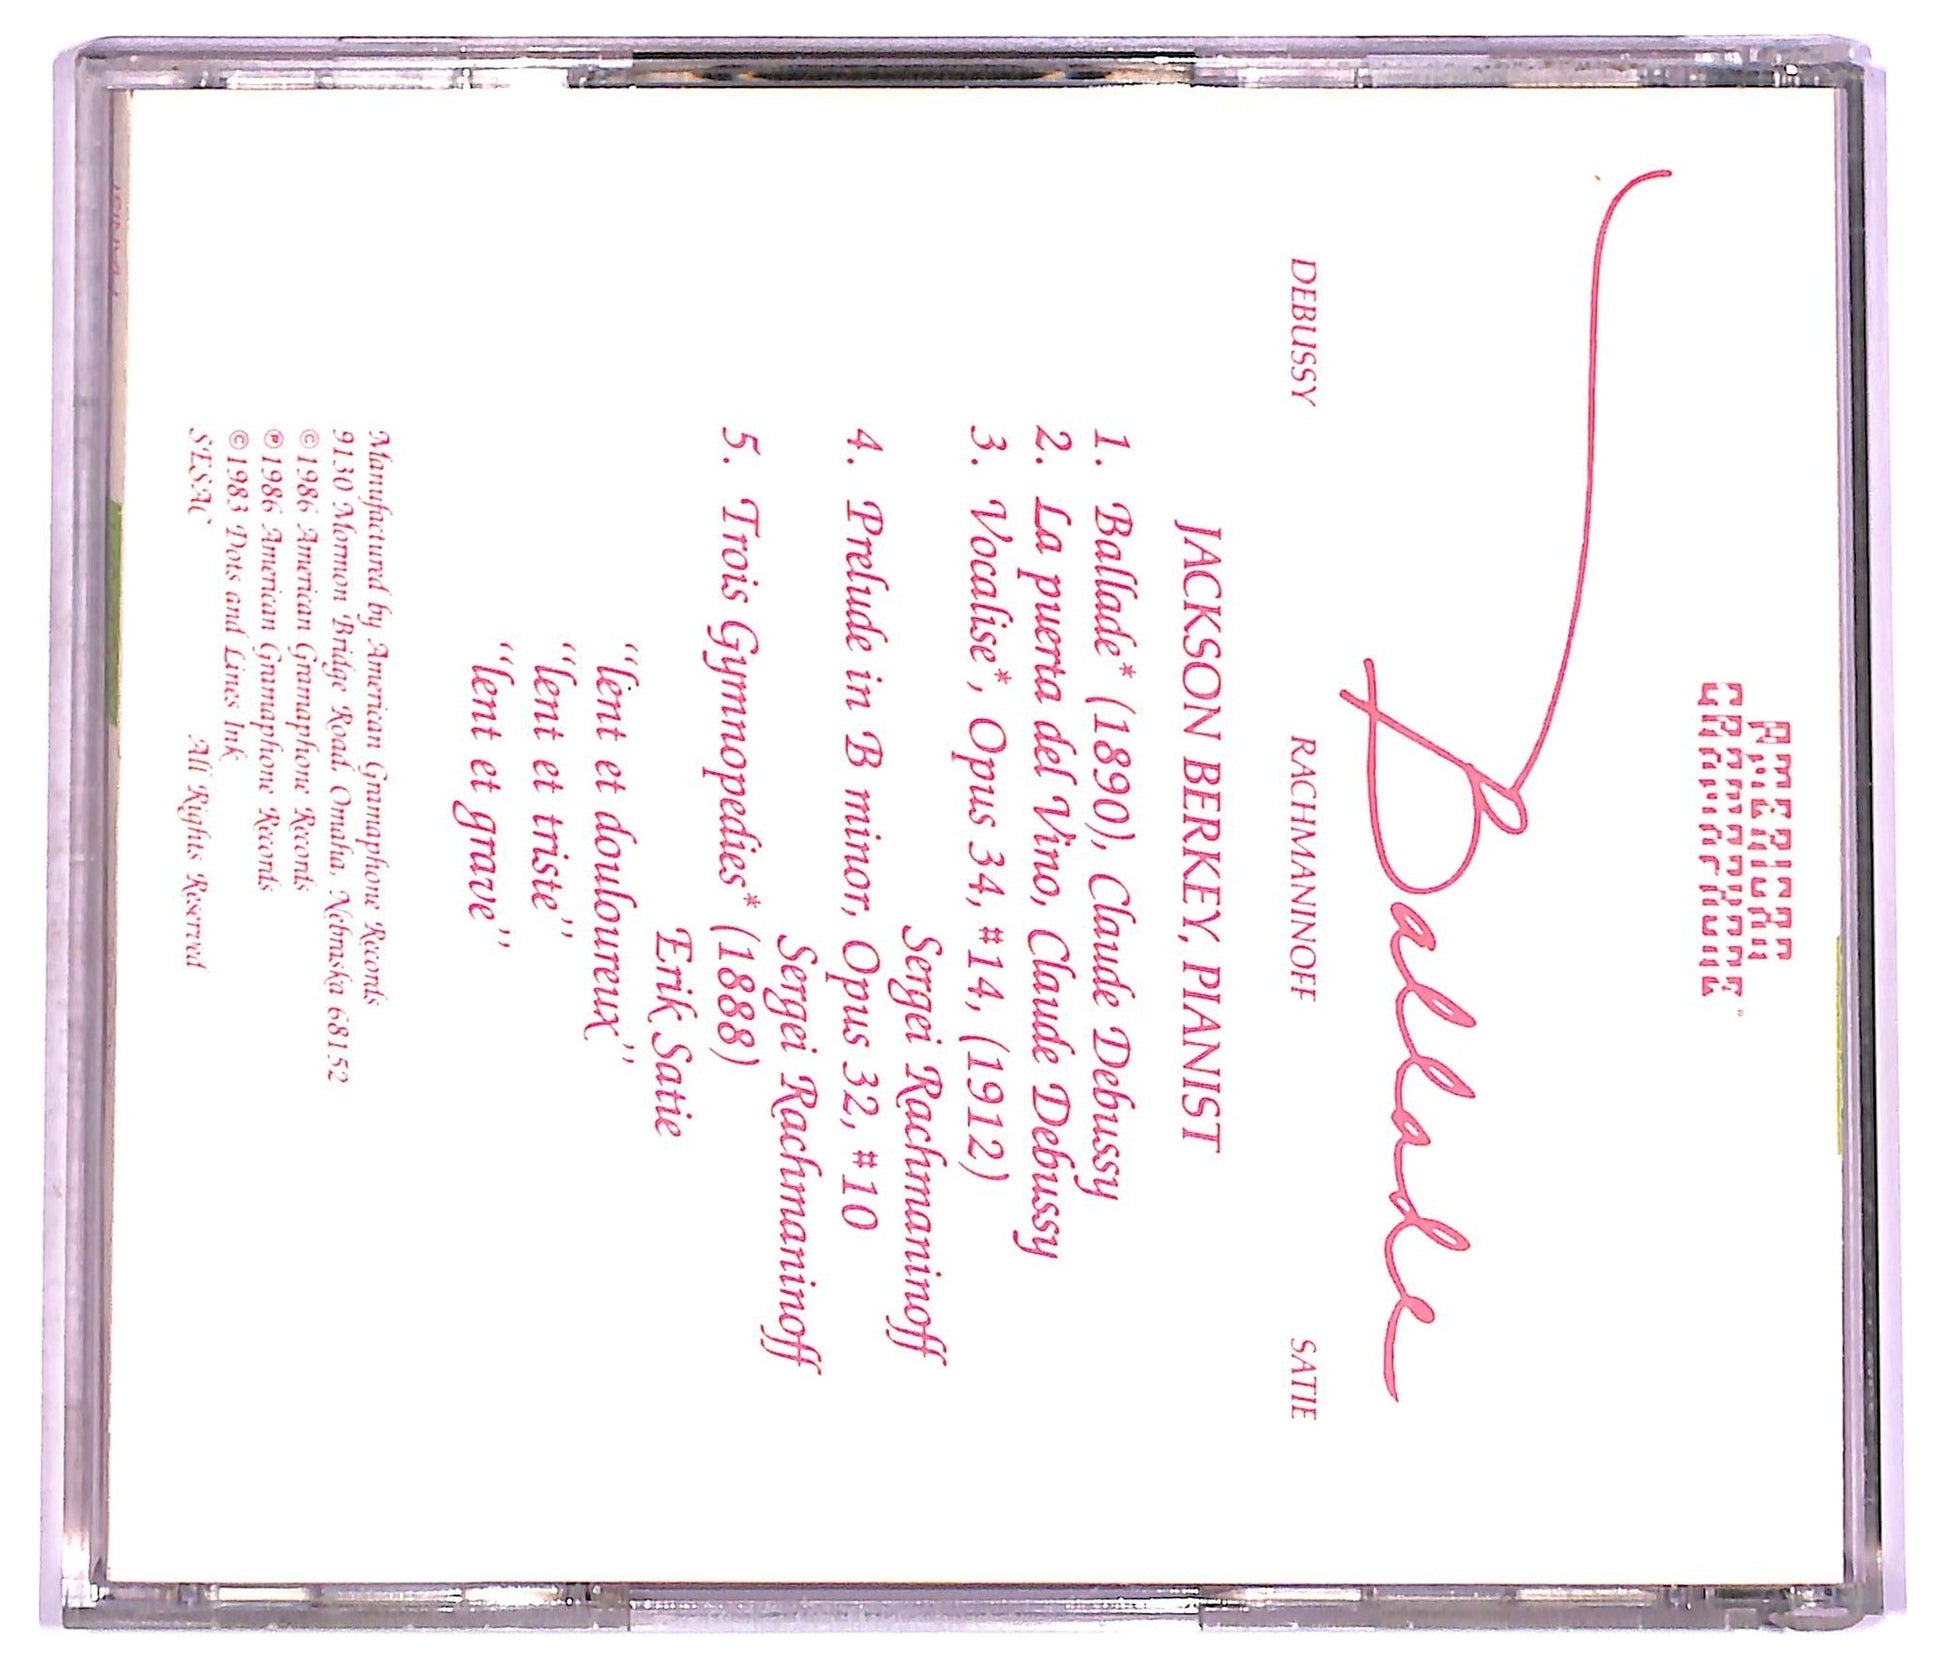 AMERICAN
GRAMAPHONE
Ballade
DEBUSSY RACHMANINOFF SATIE
JACKSON BERKEY, PIANIST
1. Ballade* (1890), Claude Debussy
2. La puerta del Vino, Claude Debussy
3. Vocalise*, Opus 34, #14, (1912)
Sergei Rachmaninoff
4. Prelude in B minor, Opus 32, #10
Sergei Rachmaninoff
5. Trois Gymnopedies* (1888)
Erik Satie
“lent et douloureux”
“lent et triste”
“lent et grave”
Manufactured by American Gramaphone Records
9130 Mormon Bridge Road, Omaha, Nebraska 68152
©1986 American Gramaphone Records
℗1986 American Gramaphone Records
©1983 Dots and Lines Ink
SESAC All Rights Reserved